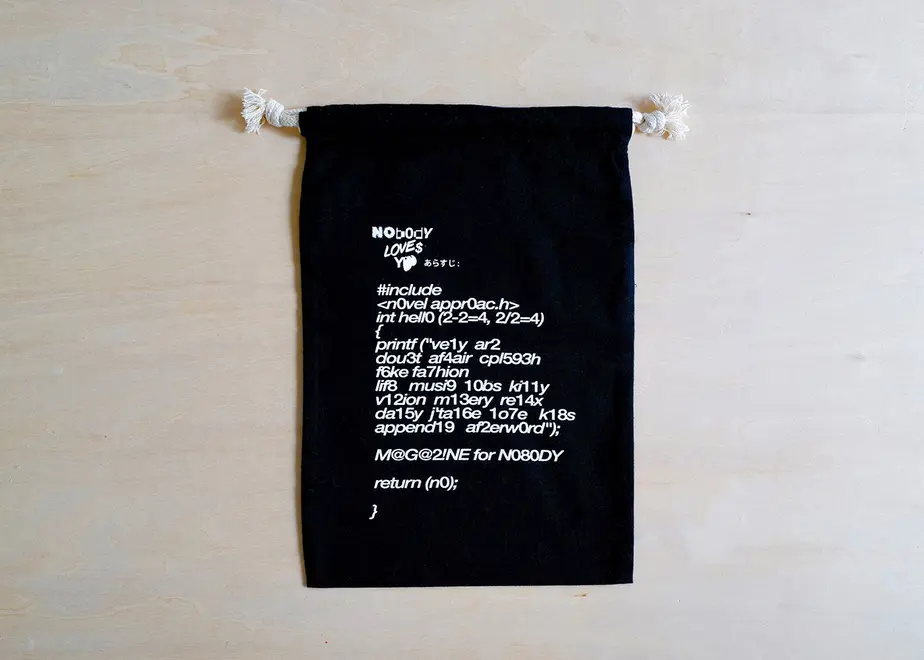 NObOdY
LOVE$
Y
あらすじ:
#include
<n0vel appr0ac.h>
int hell0 (2-2=4, 2/2=4)
{
printf ("ve1y ar2
dou3t af4air cpl593h
f6ke fa7hion
lif8 musi9 10bs ki11y
v12ion m13ery re14x
da15y j'ta16e 1o7e k18s
append19 af2erw0rd");
M@G@2!NE for N080DY
return (n0);
}